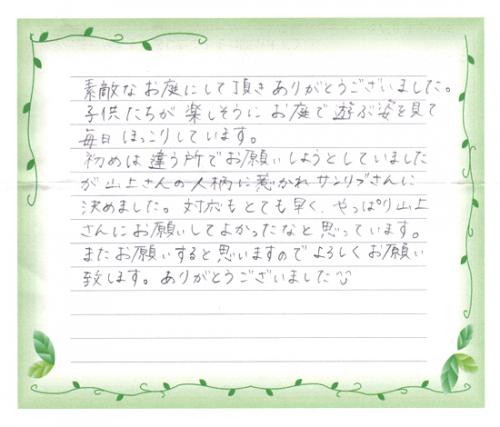 素敵なお庭にして頂きありがとうございました。
子供たちが楽しそうにお庭で遊ぶ姿を見て
毎日ほっこりしています。
初めは違う所でお願いしようとしていました
が山上さんの人柄に惹かれサンリブさんに
決めました。対応もとても早く、やっぱり山上
さんにお願いしてよかったなと思っています。
またお願いすると思いますのでよろしくお願い
致します。ありがとうございました☺